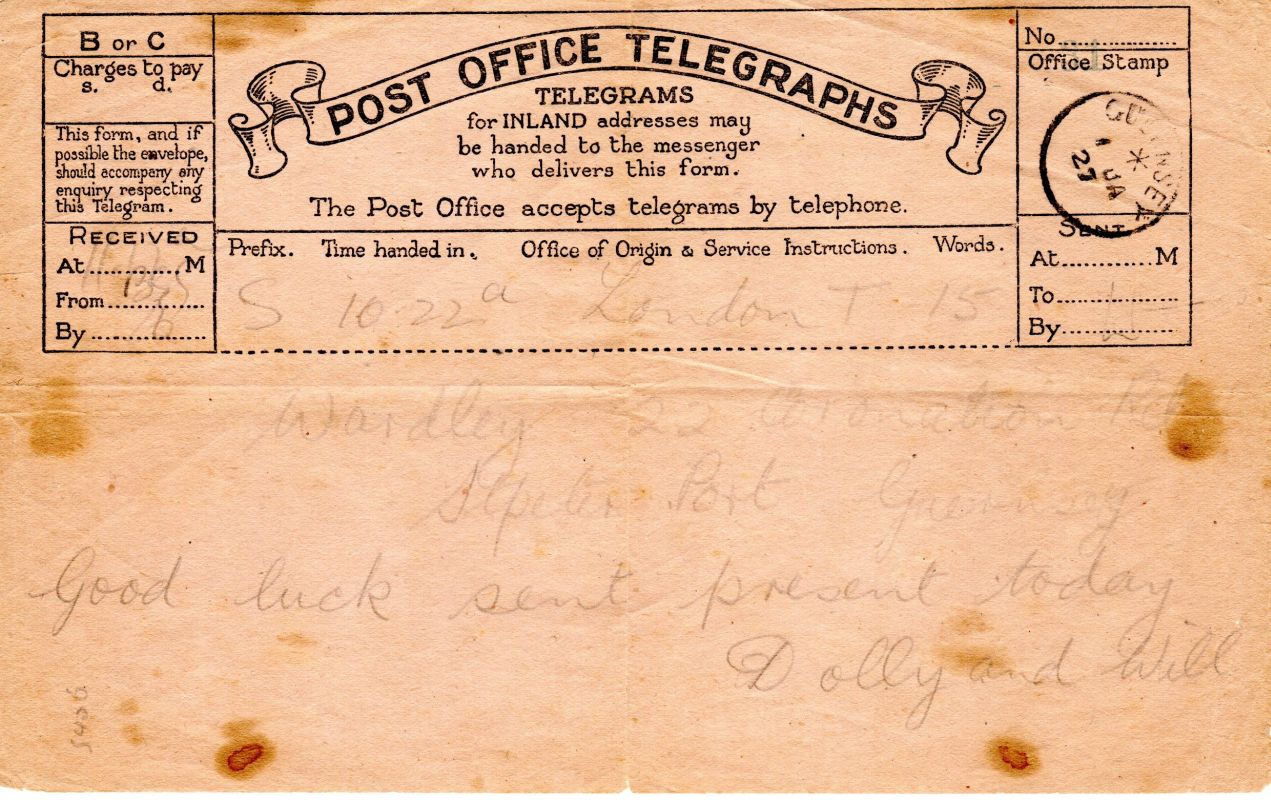 B or C
Charges to pay
s. d.
This form, and if
possible the envelope,
should accompany any
enquiry respecting
this Telegram.
RECEIVED
At............M
From...............
By..................
POST OFFICE TELEGRAPHS
TELEGRAMS
for INLAND addresses may
be handed to the messenger
who delivers this form.
The Post Office accepts telegrams by telephone.
Prefix. Time handed in. Office of Origin & Service Instructions. Words.
S 10.22a London T 15
No..................
Office Stamp
GUERNSEY
*
1 JA
27
SENT
At............M
To..................
By..................
Wardley 22 Coronation Rd
St Peter Port Guernsey
Good luck sent present today
Dolly and Will